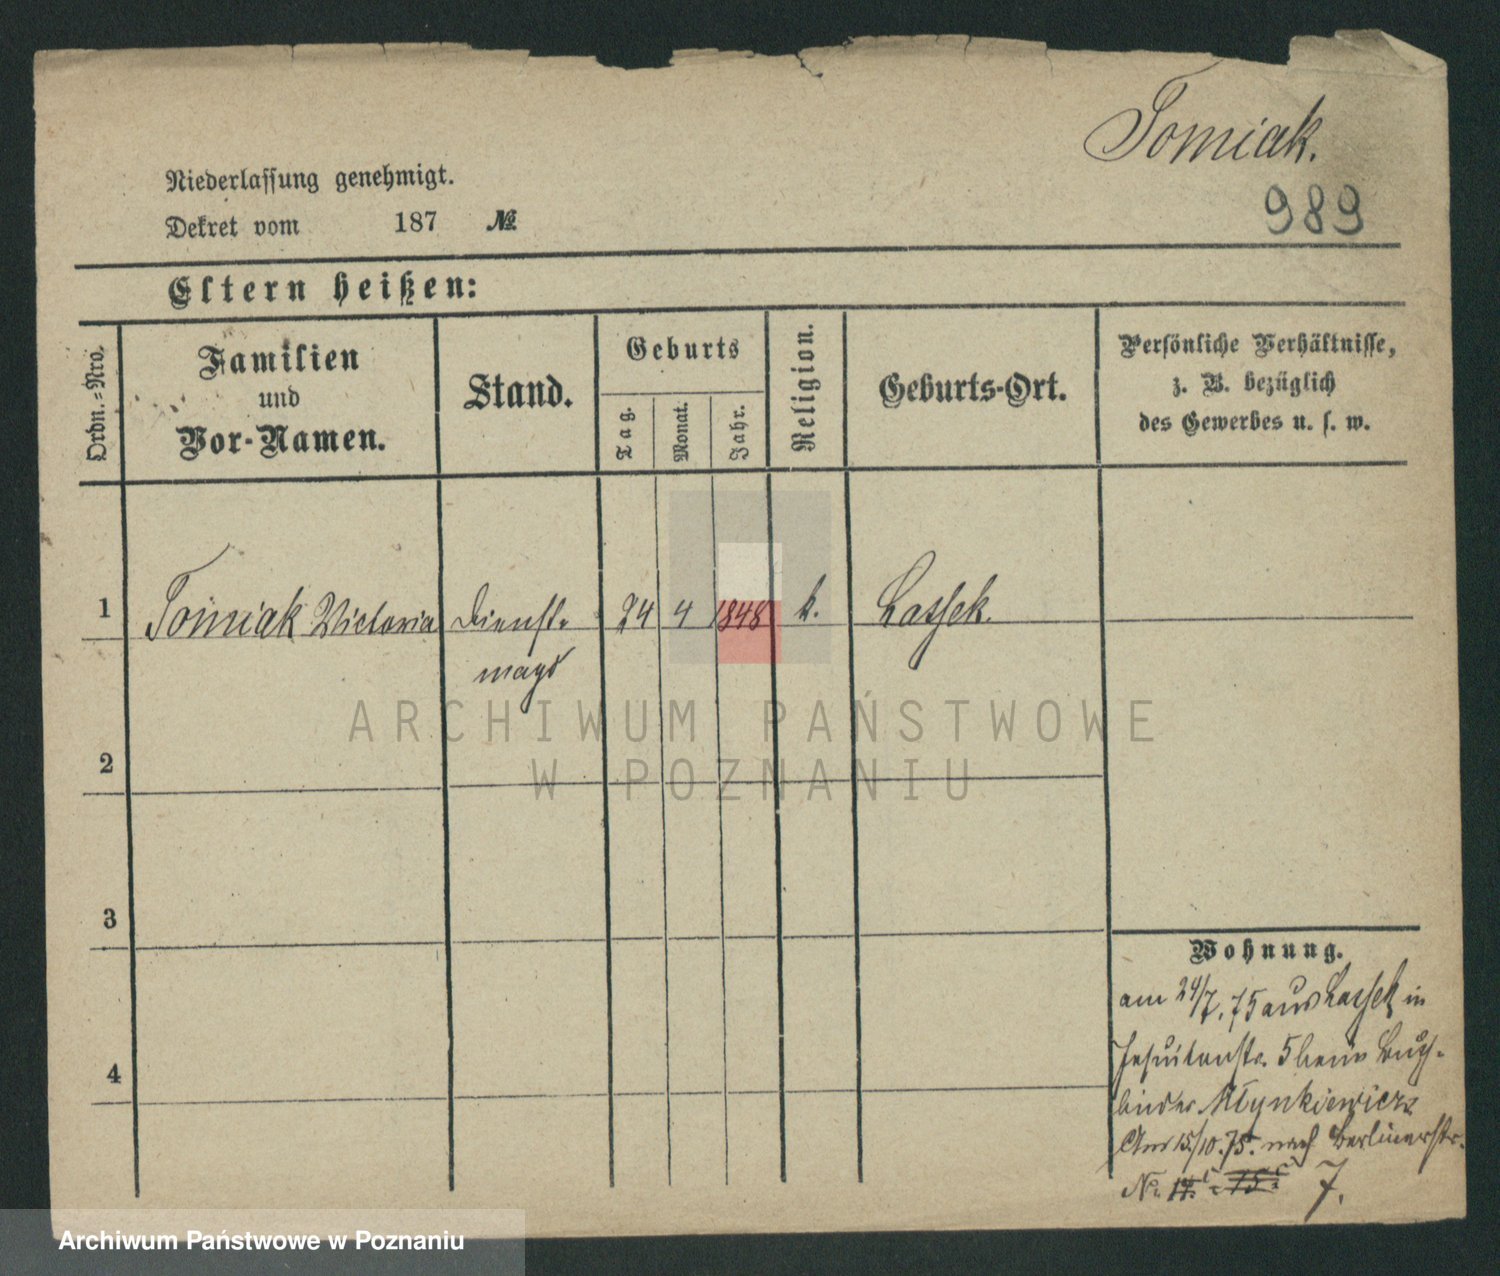 Tomiak.
989
Niederlassung genehmigt.
Dekret vom 187 №
Eltern heißen:
Ordn.=Nro.
Familien
und
Vor-Namen.
Stand.
Geburts
Tag.
Monat.
Jahr.
Religion.
Geburts-Ort.
Persönliche Verhältnisse,
z. B. bezüglich
des Gewerbes u. s. w.
1 Tomiak Victoria Dienst= 24 4 1848 k. Lassek.
magd
ARCHIWUM PAŃSTWOWE
W POZNANIU
2
3
4
Wohnung.
am 24/7. 75 aus Lassek in
Jesuitenstr. 5 beim Buch-
binder Młynkiewicz
Am 15/10. 75. nach Berlinerstr.
No. 7.
Archiwum Państwowe w Poznaniu